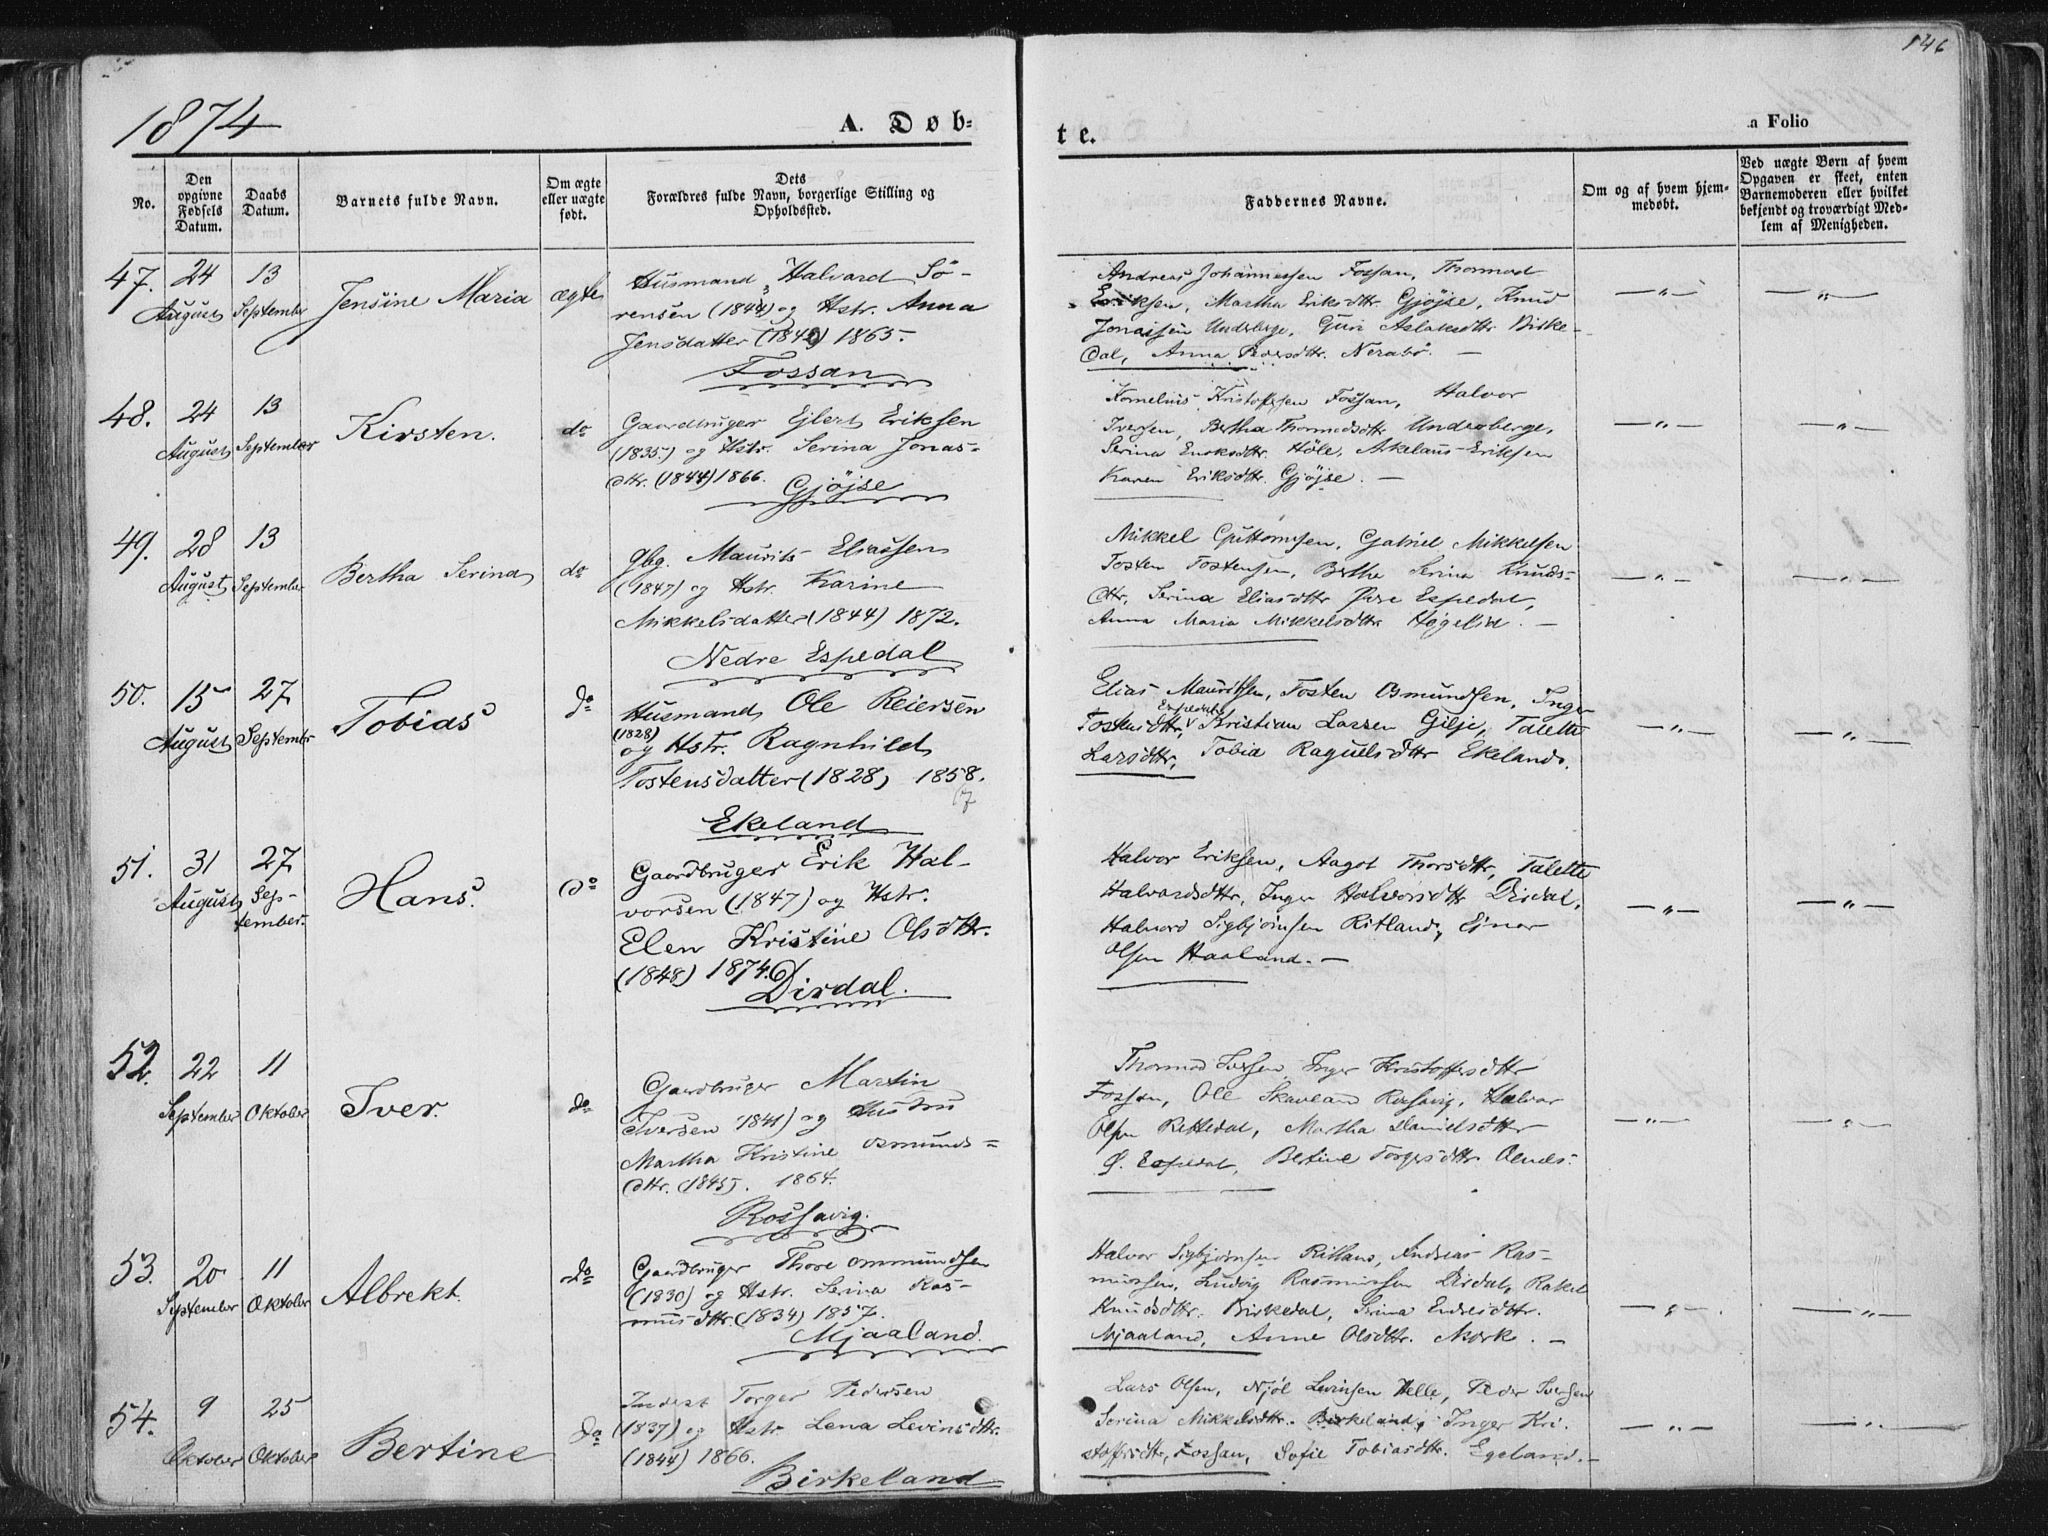 146
1874
A. Døb-
te.
a Folio
No.
Den opgivne Fødsels Datum.
Daabs Datum.
Barnets fulde Navn.
Om ægte eller uægte født.
Dets Forældres fulde Navn, borgerlige Stilling og Opholdssted.
Faddernes Navne.
Om og af hvem hjemmedøbt.
Ved uægte Børn af hvem Opgaven er skeet, enten Barnemoderen eller hvilket bekjendt og troværdigt Medlem af Menigheden.
47.
24 August
13 September
Jensine Maria
ægte
Husmand Halvard Sö-
rensen (1844) og Hstr. Anna
Jensdatter 1865.
Fossan
Andreas Johannessen Fossan, Thormod
Eriksen, Martha Eriksdttr. Gjøjse, Knud
Jonassen Undeberge, Guri Aslaksdttr Birke-
dal, Anna Pedersdttr. Nerabø. —
— „ —
— „ —
48.
24 August
13 September
Kirsten.
do
Gaardbruger Ejlert Eriksen
(1835) og Hstr. Serina Jonas-
dttr. (1844) 1866.
Gjøjse
Kornelius Kristoffersen Fossan, Halvor
Iversen, Bertha Thormodsdttr Underberge,
Serina Höle, Akelaus Eriksen
Karen Eriksdttr. Gjøjse. —
— „ —
— „ —
49.
28 August
13 September
Bertha Serina
do
Gbg. Maurits Eliassen
(1847) og Hstr. Karine
Mikkelsdatter (1844) 1872.
Nedre Espedal
Mikkel Guttormsen, Gabriel Mikkelsen
Tosten Tostensen, Bertha Serina Knuds-
dttr, Serina Eliasdttr Øvre Espedal,
Anna Maria Mikkelsdttr Høgelid. —
— „ —
— „ —
50.
15 August
27 September
Tobias
do
Husmand Ole Reiersen
(1828)
og Hstr. Ragnhild
Tostensdatter (1828) 1858.
7
Ekeland
Elias Mauritsen, Tosten Osmundsen, Inger
Espedal
Tostensdttr, Kristian Larsen Gilje, Talette
Larsdttr, Tobia Raguelsdttr Ekeland.
— „ —
— „ —
51.
31 August
27 Sep-
tember.
Hans
do
Gaardbruger Erik Hal-
vorsen (1847) og Hstr.
Elen Kristine Olsdttr.
(1848) 1874.
Dirdal.
Halvor Eriksen, Aagot Thorsdttr, Talette
Halvardsdttr, Inger Halvorsdttr Dirdal,
Halvord Sigbjörnsen Ritland, Ejner
Olsen Haaland. —
— „ —
— „ —
52.
22 September
11 Oktober
Iver.
do
Gaardbruger Martin
Iversen 1841) og Hustru
Martha Kristine Osmunds-
dttr. (1845). 1864.
Rossavig.
Thormod Iversen, Inger Kristoffersdttr
Fossan, Ole Skavland Rossavig, Halvor
Olsen Rettedal, Martha Danielsdttr
Ø. Espedal, Bertine Torgersdttr
— „ —
— „ —
53.
20 September
11 Oktober
Albrekt.
do
Gaardbruger Thore Ommundsen
(1830) og Hstr. Serina Ras-
musdttr. (1834) 1857.
Mjaaland.
Halvor Sigbjörnsen Ritland, Andreas Ras-
mussen, Ludvig Rasmussen Dirdal, Rakel
Knudsdttr. Birkedal, Serina Endresdttr.
Mjaaland, Anne Olsdttr. Mork. —
— „ —
— „ —
54.
9 Oktober
25 Oktober
Bertine
do
Inderst Torger Pedersen
(1837) og Hstr. Lena Levinsdttr.
(1844) 1866.
Birkeland
Lars Olsen, Njöl Levinsen Helle, Peder Iversen
Serina Mikkelsdttr. Birkeland, Inger Kri-
stoffersdttr, Fossan, Sofie Tobiasdttr. Egeland. —
— „ —
— „ —